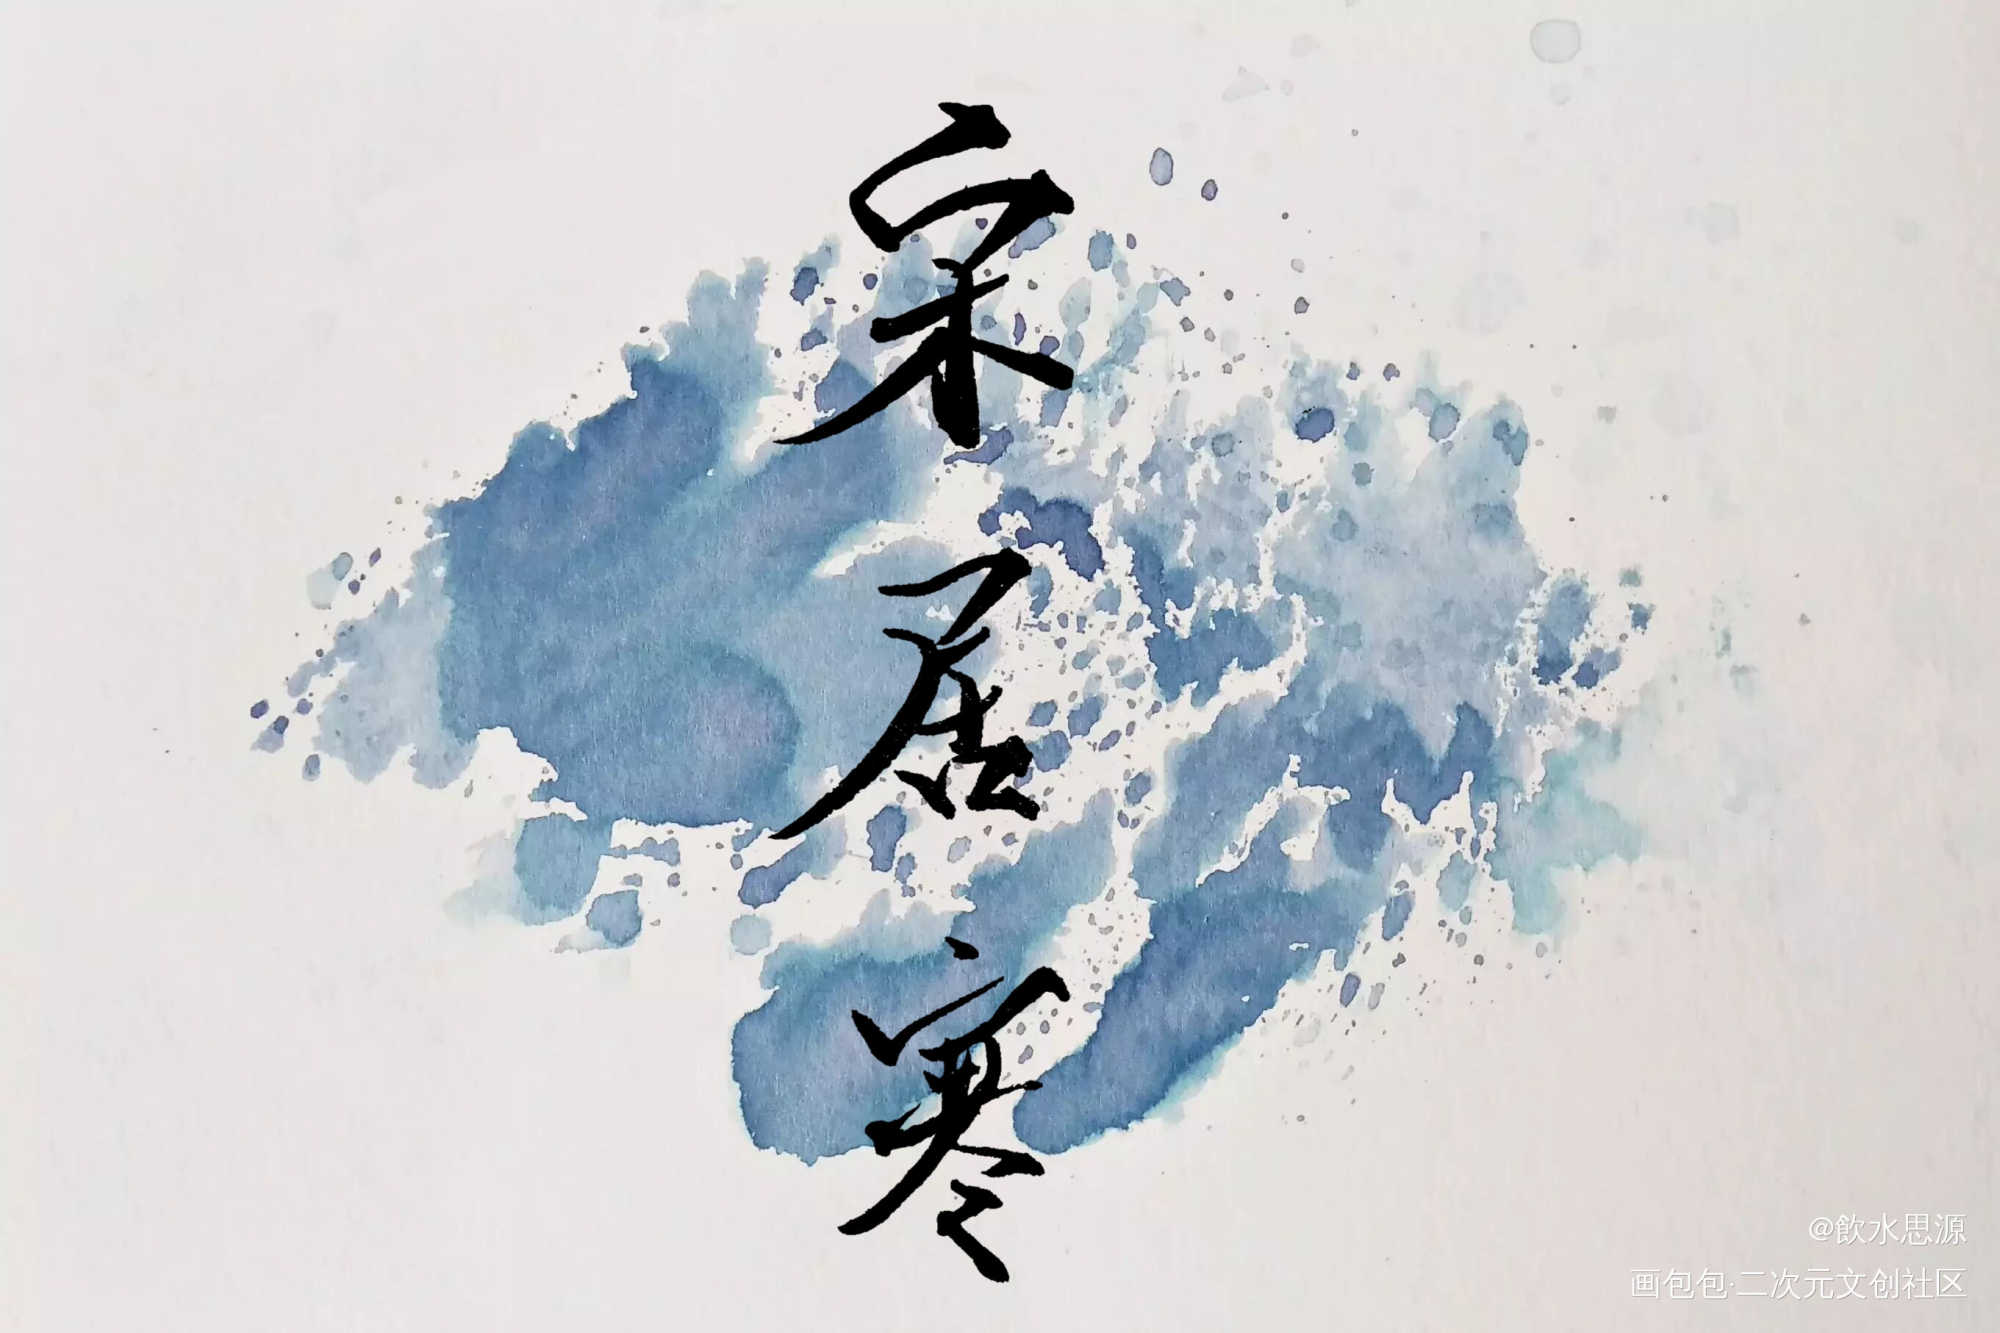 宋居寒
@飲水思源
画包包·二次元文创社区